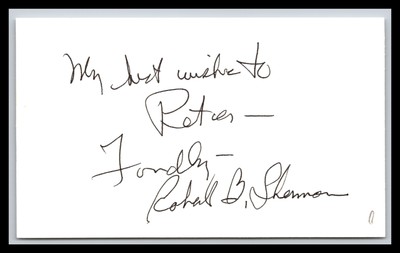 My best wishes to
Fondly—
Robert B. Sherman